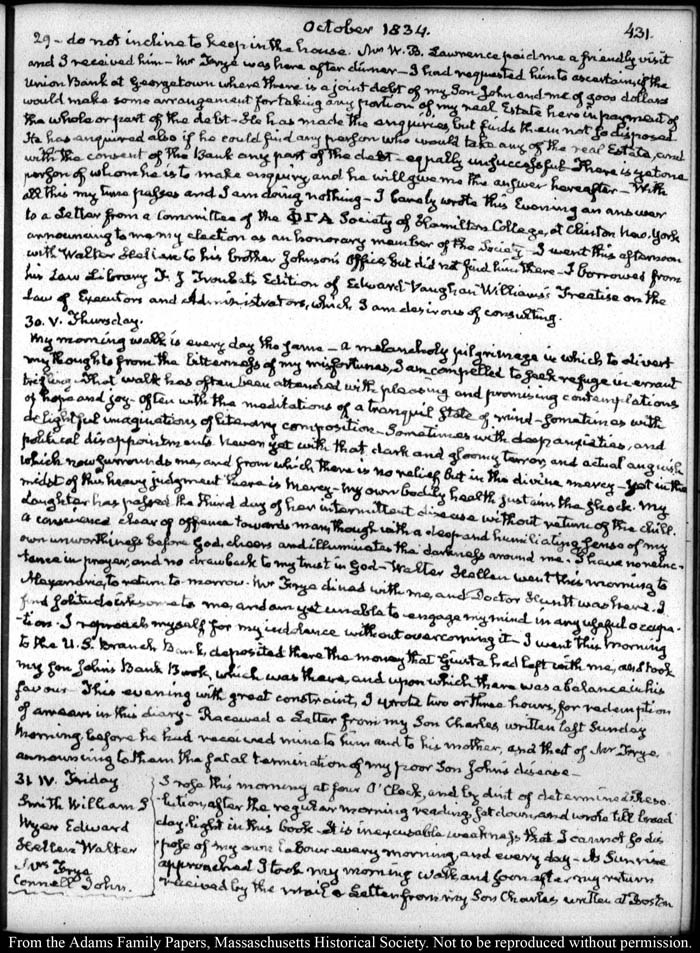 October 1834.
431.
29 - do not incline to keep in the house. Mr W. B. Lawrence paid me a friendly visit
and I received him - Mr Frye was here after dinner - I had requested him to ascertain, if the
Union Bank at Georgetown where there is a joint debt of my Son John and me of 9000 dollars
would make some arrangement for taking any portion of my real Estate here in payment of
the whole or part of the debt - He has made the enquires, but finds them not so disposed
He has enquired also if he could find any person who would take any of the real Estate, and
with the consent of the Bank any part of the debt - equally unsuccessful - There is yet one
person of whom he is to make enquiry, and he will give me the answer hereafter - With
all this my time passes and I am doing nothing - I barely wrote this Evening an answer
to a Letter from a Committee of the ΦΓΔ Society of Hamilton College, at Clinton New-York
announcing to me my election as an honorary member of the Society - I went this afternoon
with Walter Hellen to his brother Johnson's Office but did not find him there - I borrowed from
his Law Library F. J Troubat's Edition of Edward Vaughan Williams's Treatise on the
Law of Executors and Administrators, which I am desirous of consulting.
30. V. Thursday.
My morning walk is every day the same - a melancholy pilgrimage in which to divert
my thoughts from the bitterness of my misfortunes, I am compelled to seek refuge in errant
trifling - That walk has often been attended with pleasing and promising contemplations
of hope and joy - often with the meditations of a tranquil state of mind - sometimes with
delightful imaginations of literary composition - Sometimes with deep anxieties, and
political disappointments never yet with that dark and gloomy terror, and actual anguish
which now surrounds me, and from which there is no relief but in the divine mercy - yet in the
midst of this heavy judgment there is Mercy - my own bodily health sustains the shock. My
daughter has passed the third day of her intermittent disease without return of the chill.
A conscience clear of offence towards man, though with a deep and humiliating sense of my
own unworthiness before God, cheers and illuminates the darkness around me. I have no reluc-
tance in prayer, and no drawback to my trust in God - Walter Hellen went this morning to
Alexandria, to return to-morrow. Mr Frye dined with me, and Doctor Huntt was here. I
find solitude irksome to me, and am yet unable to engage my mind in any useful occupa-
tion - I reproach myself for my indolence without overcoming it - I went this morning
to the U.S. Branch Bank, deposited there the money that Giusta had left with me, and took
my Son John's Bank Book, which was there, and upon which there was a balance in his
favour - This evening with great constraint, I wrote two or three hours, for redemption
of arrears in this diary - Received a Letter from my Son Charles, written last Sunday
Morning, before he had received mine to him and to his mother, and that of Mr Frye
announcing to them the fatal termination of my poor Son John's disease -
31. IV. Friday
Smith William S
Wyer Edward
Hellen Walter
Mrs Frye
Connell John.
I rose this morning at four O'Clock, and by dint of determined Reso-
lution, after the regular morning reading, sat down, and wrote till broad
day-light in this book. It is inexcusable weakness that I cannot so dis-
pose of my own Labour every morning, and every day - As Sunrise
approached I took my morning walk and soon after my return
received by the mail a Letter from my Son Charles, written at Boston
From the Adams Family Papers, Massachusetts Historical Society. Not to be reproduced without permission.